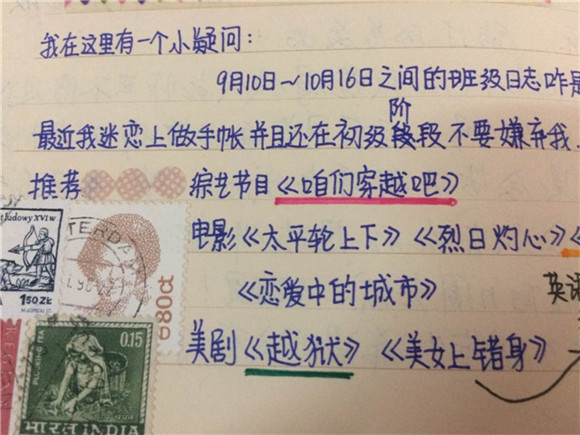 我在这里有一个小疑问：
9月10日～10月16日之间的班级日志咋是
阶
最近我迷恋上做手帐并且还在初级段不要嫌弃我
推荐
综艺节目《咱们穿越吧》
电影《太平轮上下》《烈日灼心》《
《恋爱中的城市》
英语
美剧《越狱》《美女上错身》
ludowy XVI w
1 50 ZŁ
TERDA
80ct
0.15
भारत INDIA